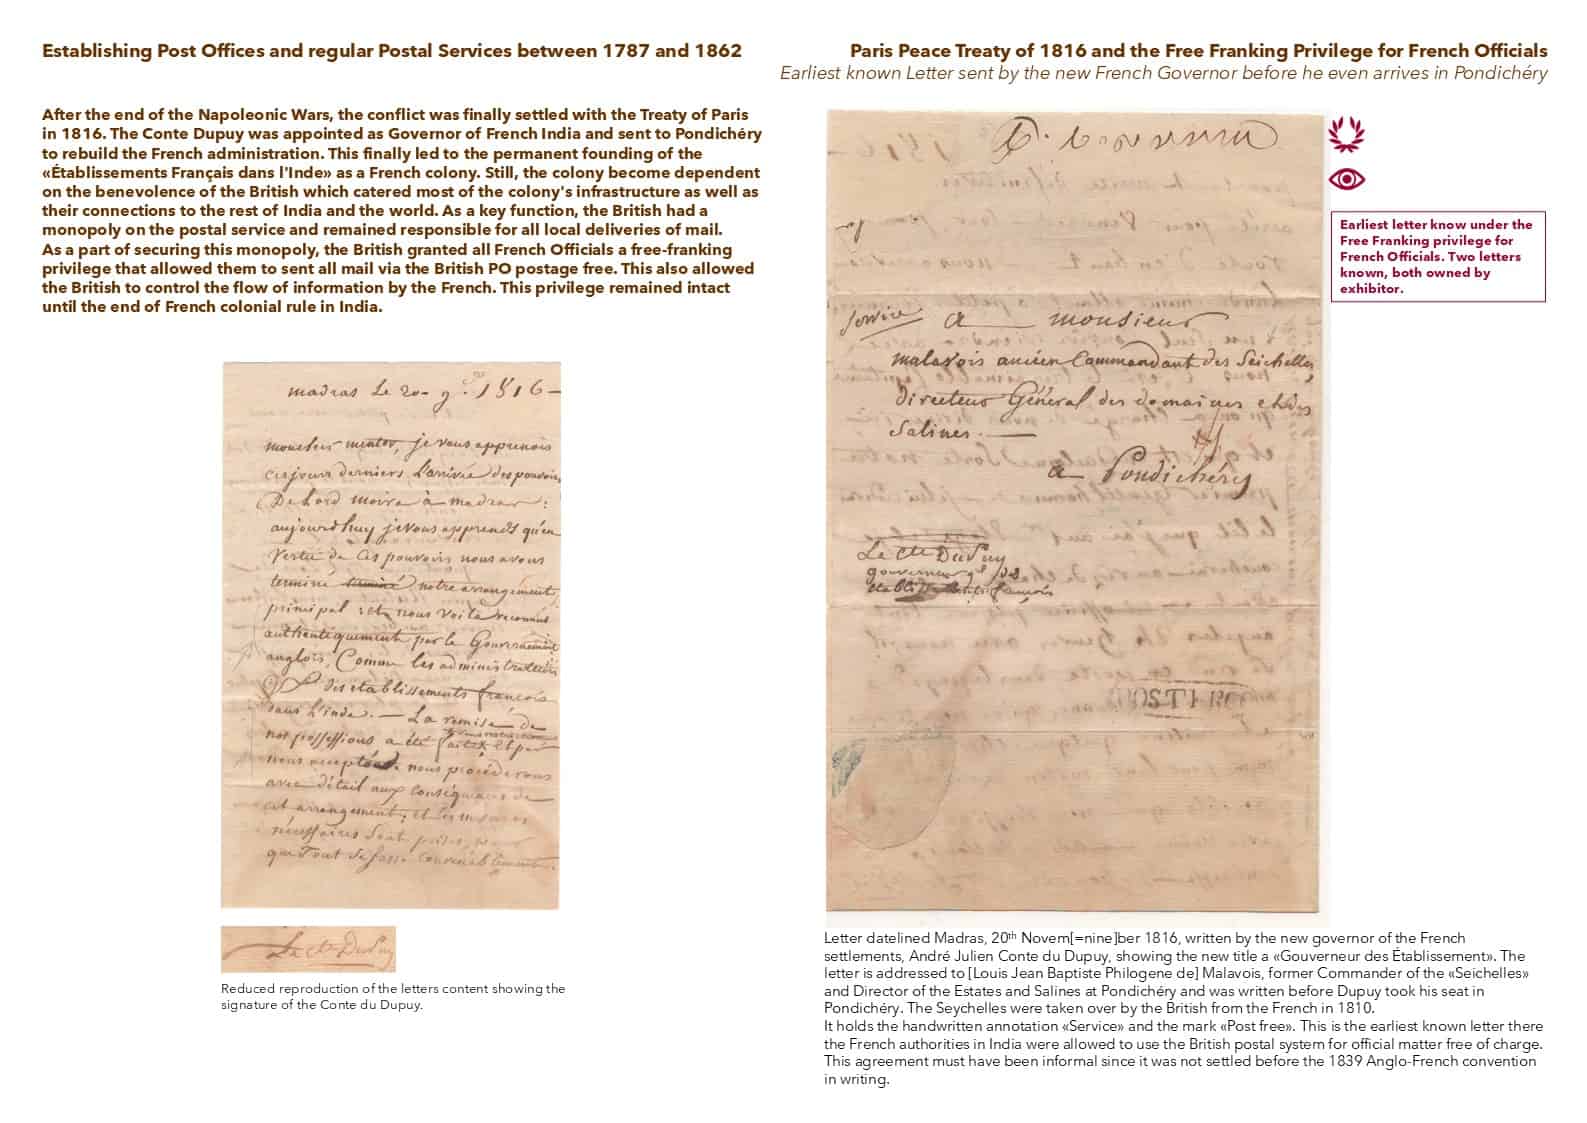 Establishing Post Offices and regular Postal Services between 1787 and 1862
After the end of the Napoleonic Wars, the conflict was finally settled with the Treaty of Paris
in 1816. The Conte Dupuy was appointed as Governor of French India and sent to Pondichéry
to rebuild the French administration. This finally led to the permanent founding of the
«Établissements Français dans l'Inde» as a French colony. Still, the colony become dependent
on the benevolence of the British which catered most of the colony's infrastructure as well as
their connections to the rest of India and the world. As a key function, the British had a
monopoly on the postal service and remained responsible for all local deliveries of mail.
As a part of securing this monopoly, the British granted all French Officials a free-franking
privilege that allowed them to sent all mail via the British PO postage free. This also allowed
the British to control the flow of information by the French. This privilege remained intact
until the end of French colonial rule in India.
madras Le 20 1816
monsieur je vous apprenois
ces jours derniers l'arrivée des pouvoirs
De Lord moira à madras
aujourdhuy je vous apprends qu'en
vertu de ces pouvoirs nous avons
terminé notre arrangement
principal et nous voila reconnus
authentiquement par le Gouvernement
anglois, Comme les administrateurs
des etablissements françois
dans l'inde. La remise de
nos possessions a été
nous procéderons
avec détail aux conséquences de
cet arrangement, et les mesures
nécessaires sont prises pour
que Tout se fasse convenablement
Le cte DuPuy
Reduced reproduction of the letters content showing the
signature of the Conte du Dupuy.
Paris Peace Treaty of 1816 and the Free Franking Privilege for French Officials
Earliest known Letter sent by the new French Governor before he even arrives in Pondichéry
Service a monsieur
malavois ancien Commandant des Seichelles,
directeur Général des domaines et des
Salines.
a Pondichéry
Le cte DuPuy
gouverneur gl des
françois
POST FREE
Earliest letter know under the
Free Franking privilege for
French Officials. Two letters
known, both owned by
exhibitor.
Letter datelined Madras, 20th Novem[=nine]ber 1816, written by the new governor of the French
settlements, André Julien Conte du Dupuy, showing the new title a «Gouverneur des Établissement». The
letter is addressed to [Louis Jean Baptiste Philogene de] Malavois, former Commander of the «Seichelles»
and Director of the Estates and Salines at Pondichéry and was written before Dupuy took his seat in
Pondichéry. The Seychelles were taken over by the British from the French in 1810.
It holds the handwritten annotation «Service» and the mark «Post free». This is the earliest known letter there
the French authorities in India were allowed to use the British postal system for official matter free of charge.
This agreement must have been informal since it was not settled before the 1839 Anglo-French convention
in writing.